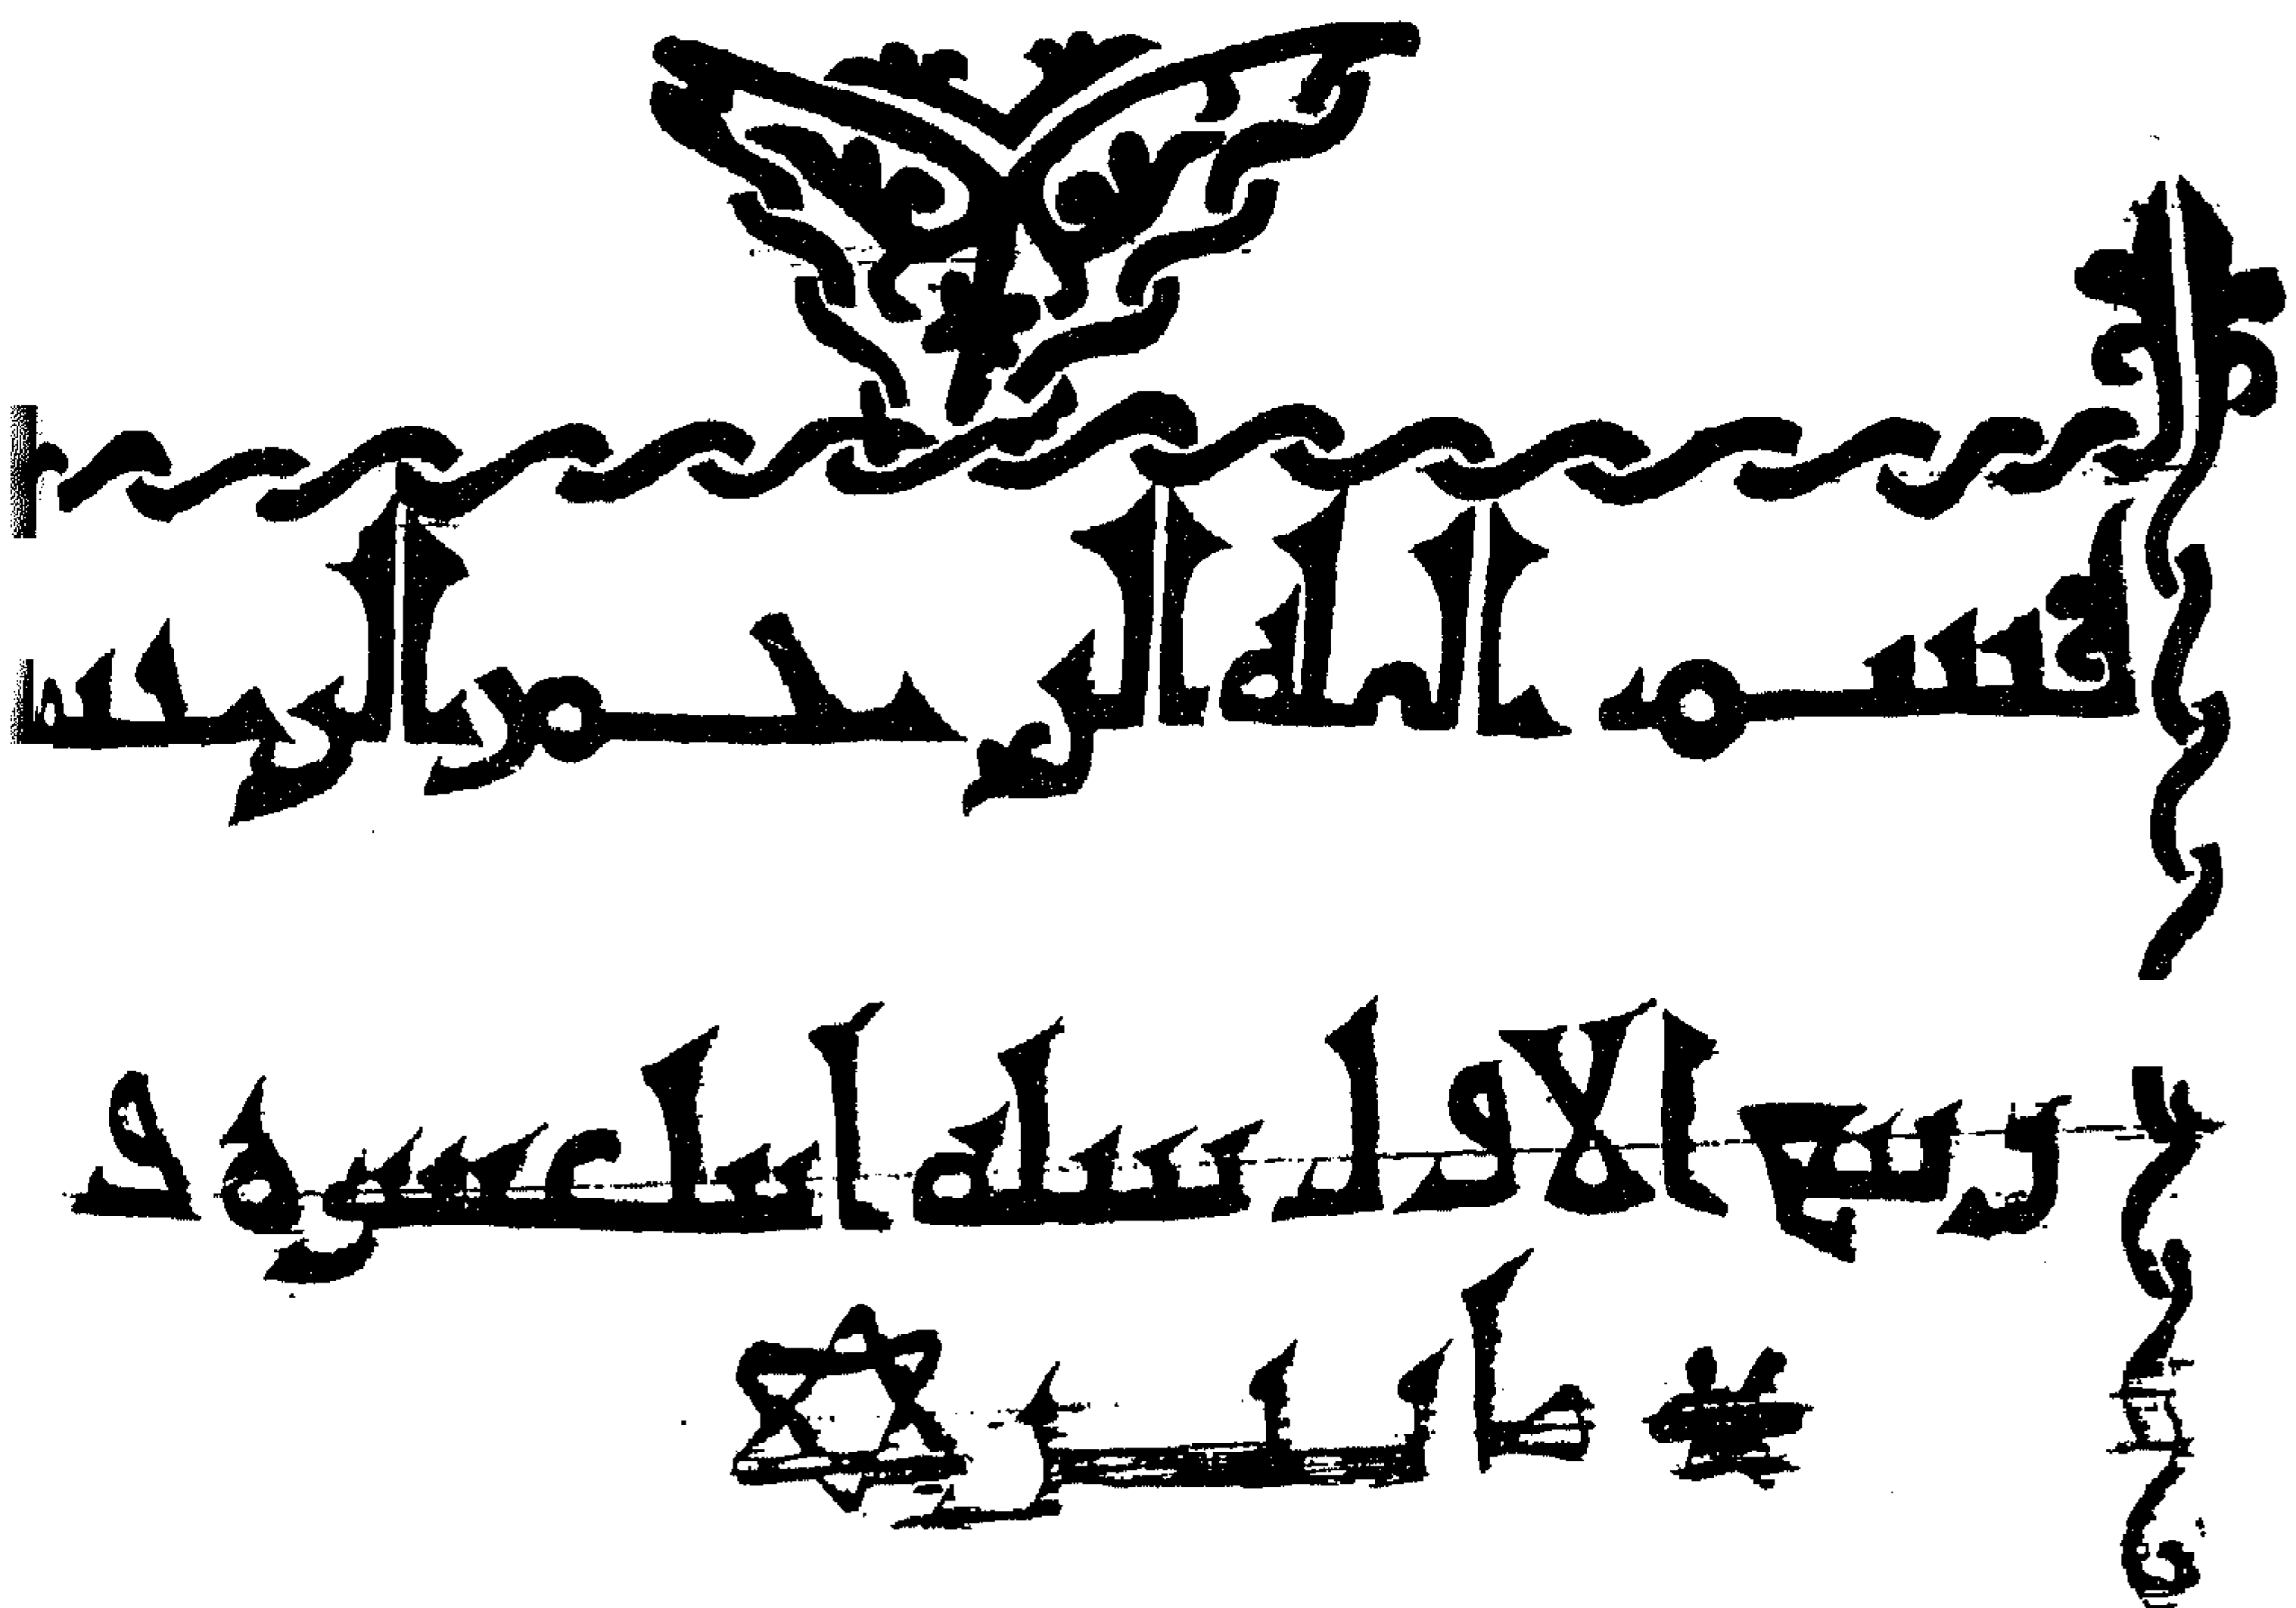 بسم الله الرحمن الرحيم
ربيع الاول سنة اثنا عشرة و
مايتين